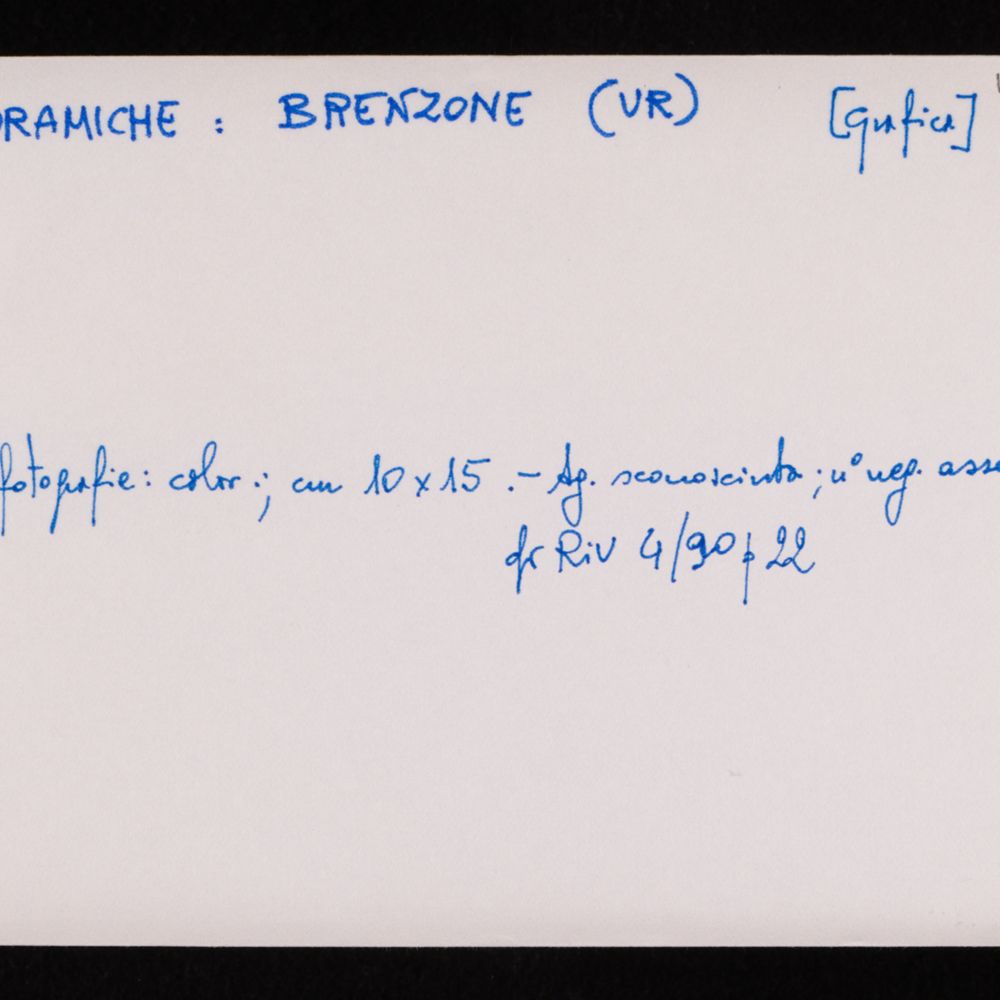 ORAMICHE : BRENZONE (VR) [Grafica]
fotografie : color. ; cm 10 x 15 . - Ag. sconosciuta ; n° neg. asse
cfr RiV 4/90 p 22